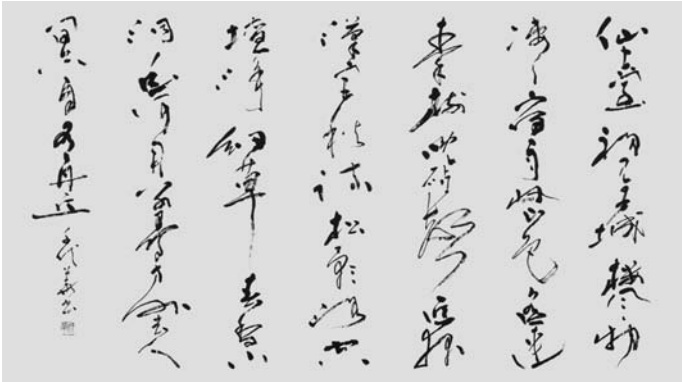 仙臺初見五城樓風物
凄々宿雨收山色遙連
秦樹晚砧聲近報
漢宮秋疎松影落空
壇淨細草春香小
洞幽何用別尋方外去人
間亦自有丹丘